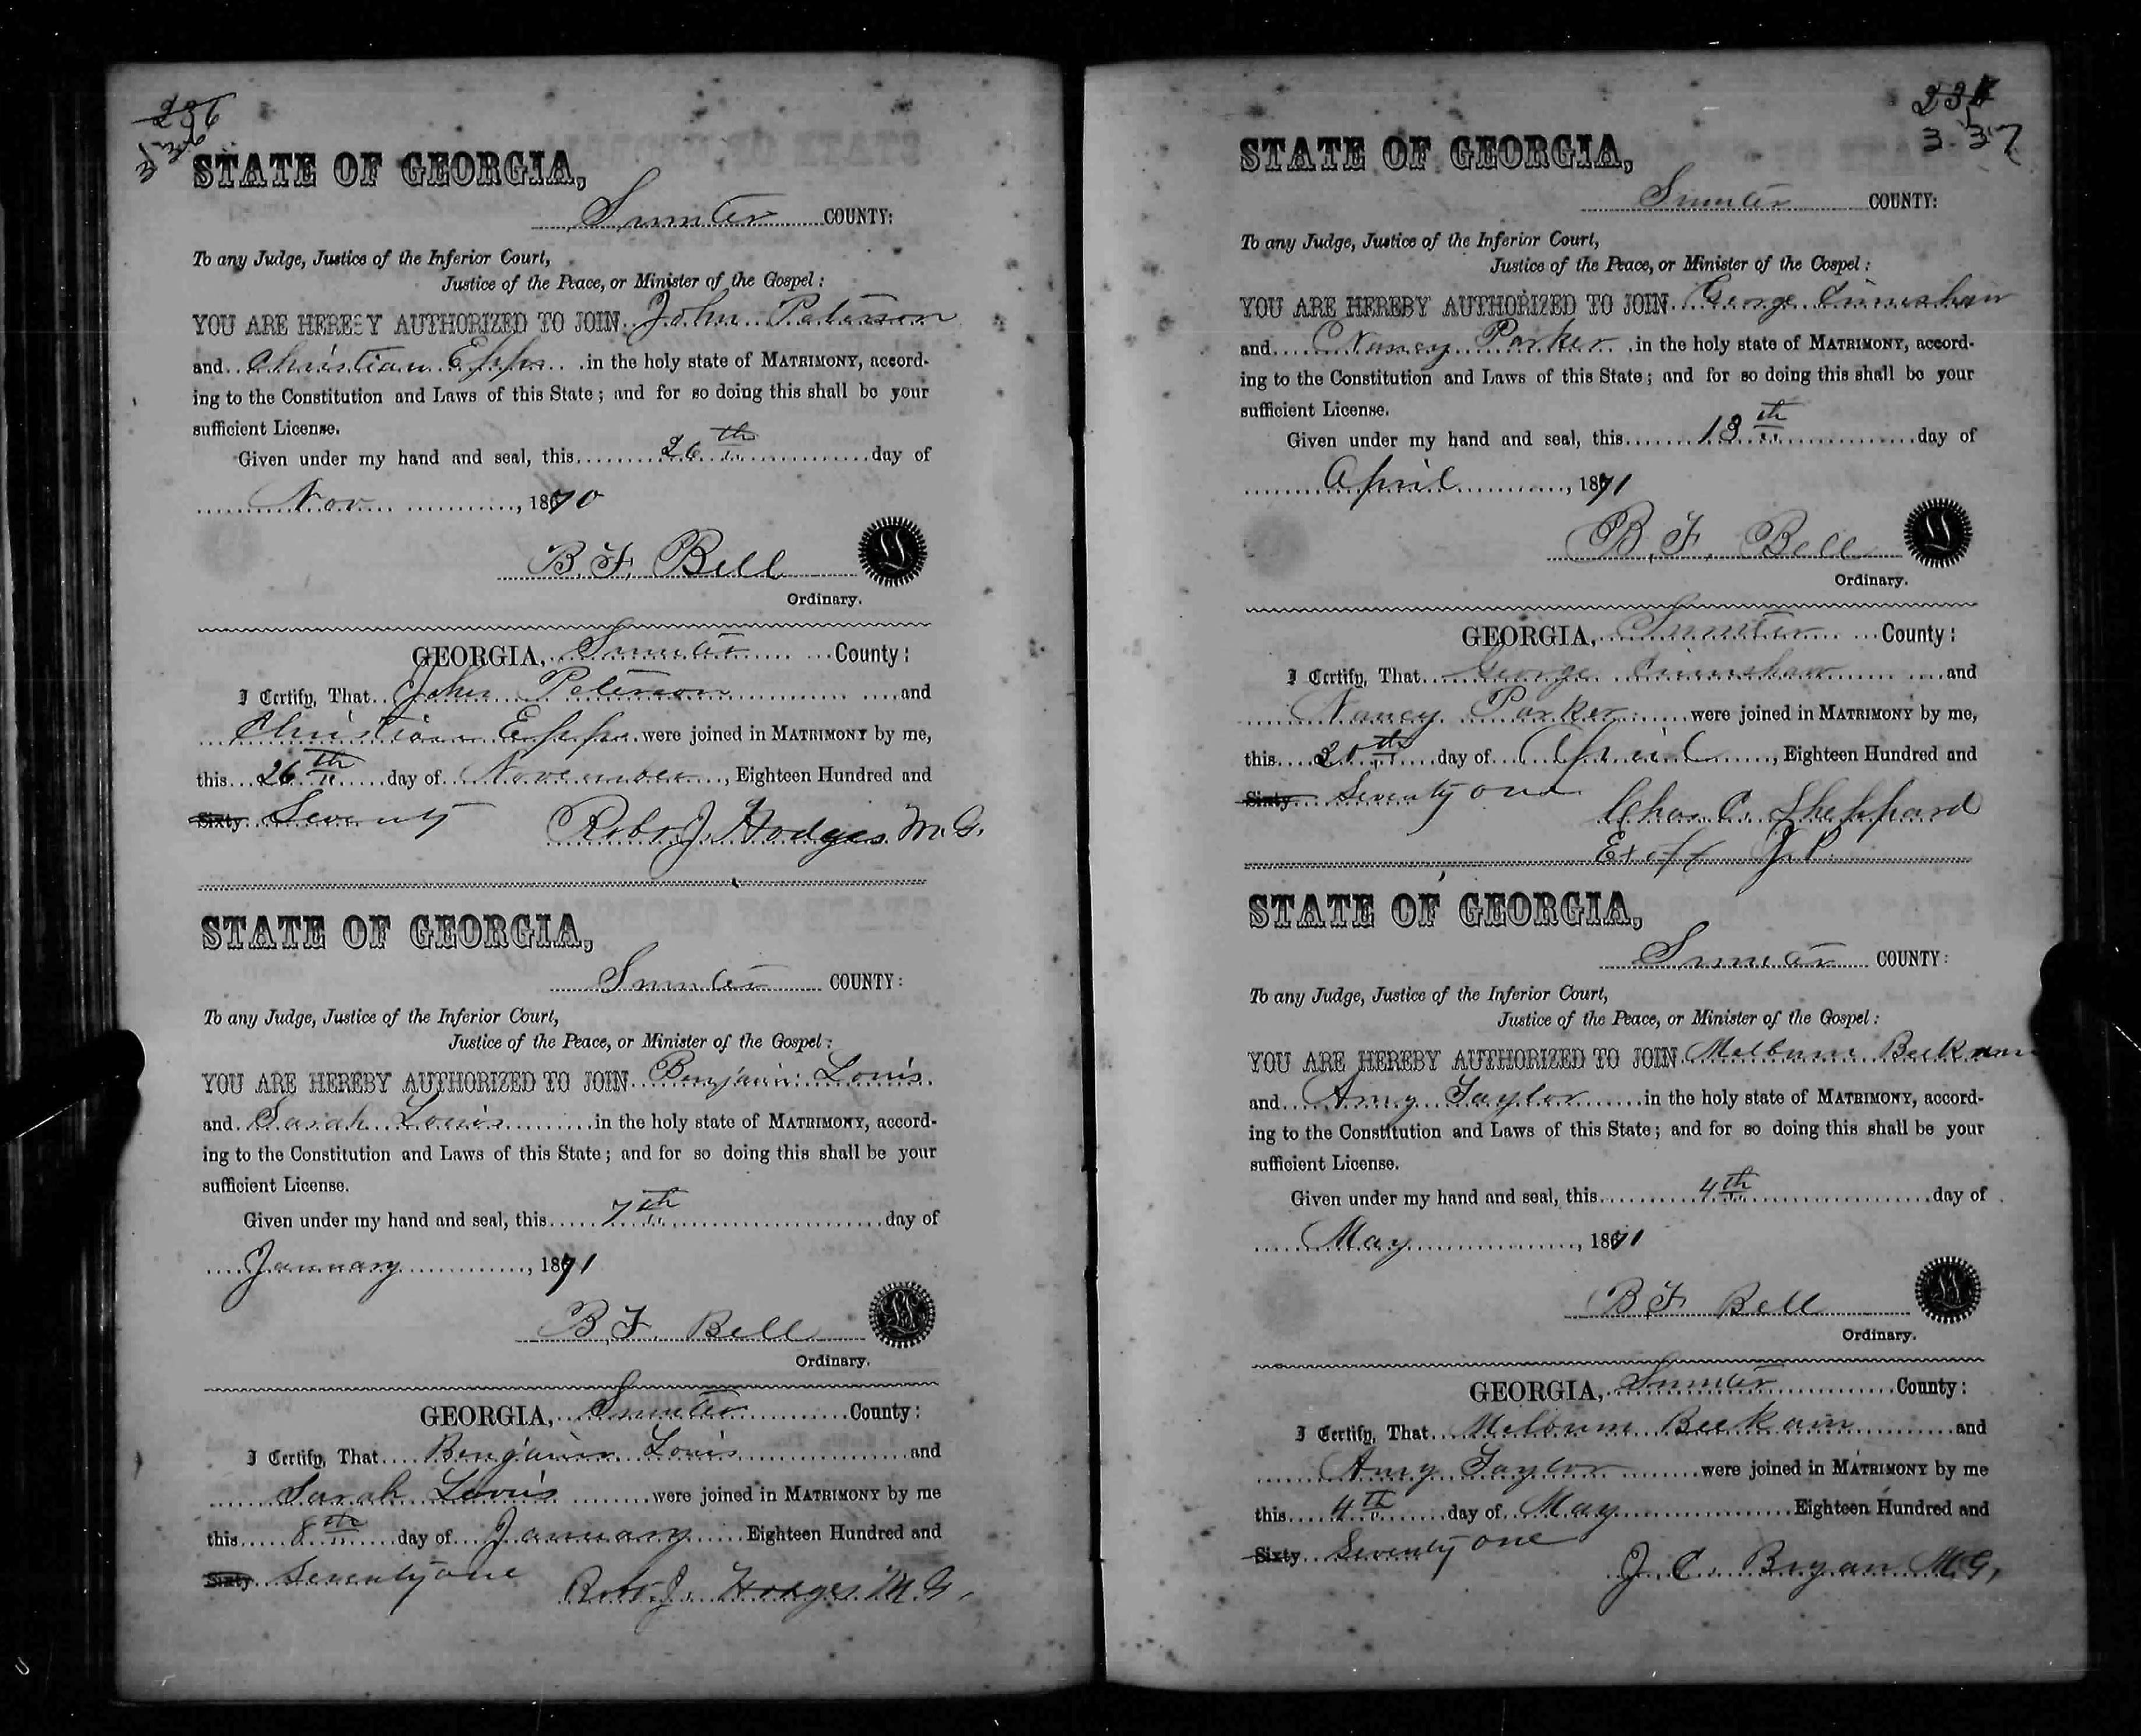 236
336
STATE OF GEORGIA,
Sumter COUNTY:
To any Judge, Justice of the Inferior Court,
Justice of the Peace, or Minister of the Gospel:
YOU ARE HEREBY AUTHORIZED TO JOIN John Peterson
and Christian Epps in the holy state of MATRIMONY, accord-
ing to the Constitution and Laws of this State; and for so doing this shall be your
sufficient License.
Given under my hand and seal, this 26th day of
Nov , 1870
B. F. Bell
Ordinary.
GEORGIA, Sumter County:
I Certify, That John Peterson and
Christian Epps were joined in MATRIMONY by me,
this 26th day of November, Eighteen Hundred and
Sixty Seventy
Robt. J. Hodges M. G.
STATE OF GEORGIA,
Sumter COUNTY:
To any Judge, Justice of the Inferior Court,
Justice of the Peace, or Minister of the Gospel:
YOU ARE HEREBY AUTHORIZED TO JOIN Benjamin Louis
and Sarah Louis in the holy state of MATRIMONY, accord-
ing to the Constitution and Laws of this State; and for so doing this shall be your
sufficient License.
Given under my hand and seal, this 7th day of
January , 1871
B. F. Bell
Ordinary.
GEORGIA, Sumter County:
I Certify, That Benjamin Louis and
Sarah Louis were joined in MATRIMONY by me
this 8th day of January Eighteen Hundred and
Sixty Seventy one
Robt. J. Hodges M. G.
337
STATE OF GEORGIA,
Sumter COUNTY:
To any Judge, Justice of the Inferior Court,
Justice of the Peace, or Minister of the Gospel:
YOU ARE HEREBY AUTHORIZED TO JOIN George
and Nancy Parker in the holy state of MATRIMONY, accord-
ing to the Constitution and Laws of this State; and for so doing this shall be your
sufficient License.
Given under my hand and seal, this 13th day of
April , 1871
B. F. Bell
Ordinary.
GEORGIA, Sumter County:
I Certify, That George and
Nancy Parker were joined in MATRIMONY by me,
this day of April, Eighteen Hundred and
Sixty Seventy one
Chas. C. Sheppard
Ex off J. P.
STATE OF GEORGIA,
Sumter COUNTY:
To any Judge, Justice of the Inferior Court,
Justice of the Peace, or Minister of the Gospel:
YOU ARE HEREBY AUTHORIZED TO JOIN
and Amy Taylor in the holy state of MATRIMONY, accord-
ing to the Constitution and Laws of this State; and for so doing this shall be your
sufficient License.
Given under my hand and seal, this 4th day of
May , 1871
B F Bell
Ordinary.
GEORGIA, Sumter County:
I Certify, That and
Amy Taylor were joined in MATRIMONY by me
this 4th day of May Eighteen Hundred and
Sixty Seventy one
J. C. Bryan M. G.